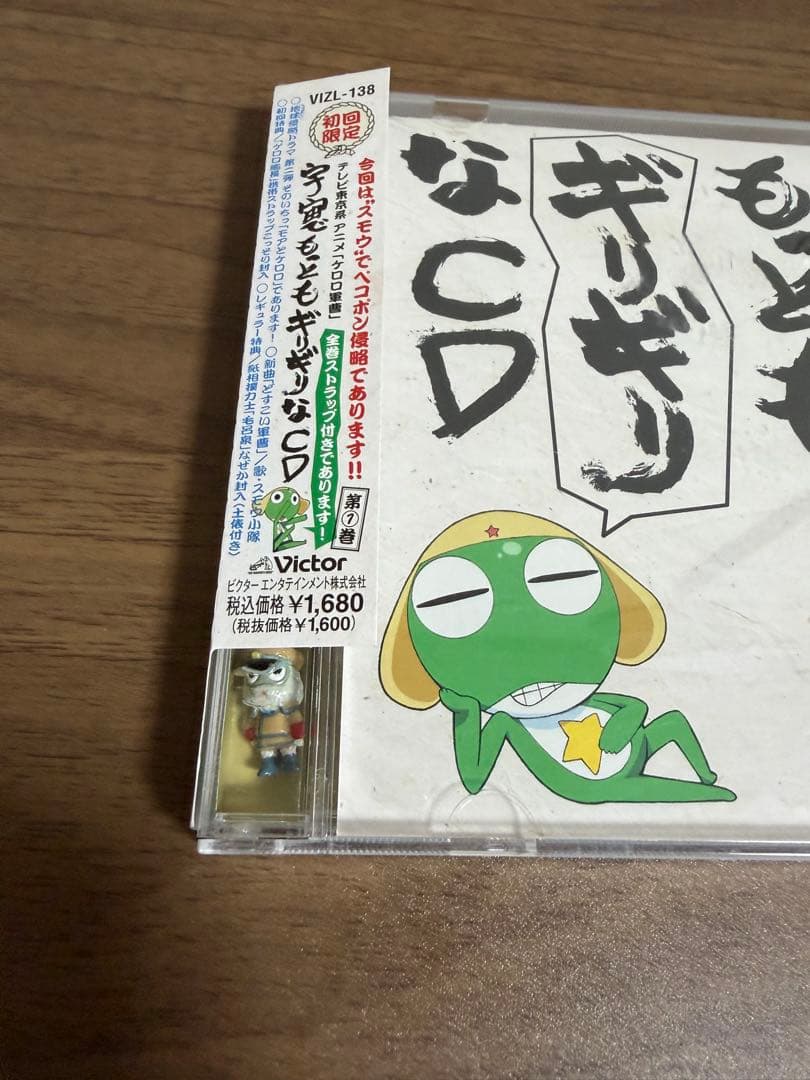 VIZL-138
初回
限定
今回は"スモウ"でペコポン侵略であります!!
テレビ東京系 アニメ「ケロロ軍曹」
宇宙でもっともギリギリなCD
第1巻
全巻ストラップ付きであります!
○地球侵略ドラマ 第二弾 そのいちっ「モアとケロロ」であります! ○新曲「どすこい軍曹」/歌・スモウ小隊
○初回特典/「ケロロ艦長」携帯ストラップこっそり封入 ○レギュラー特典/紙相撲力士「毛呂泉」なぜか封入〈土俵付き〉
Victor
ビクター エンタテインメント株式会社
税込価格¥1,680
(税抜価格¥1,600)
もっとも
ギリギリ
なCD